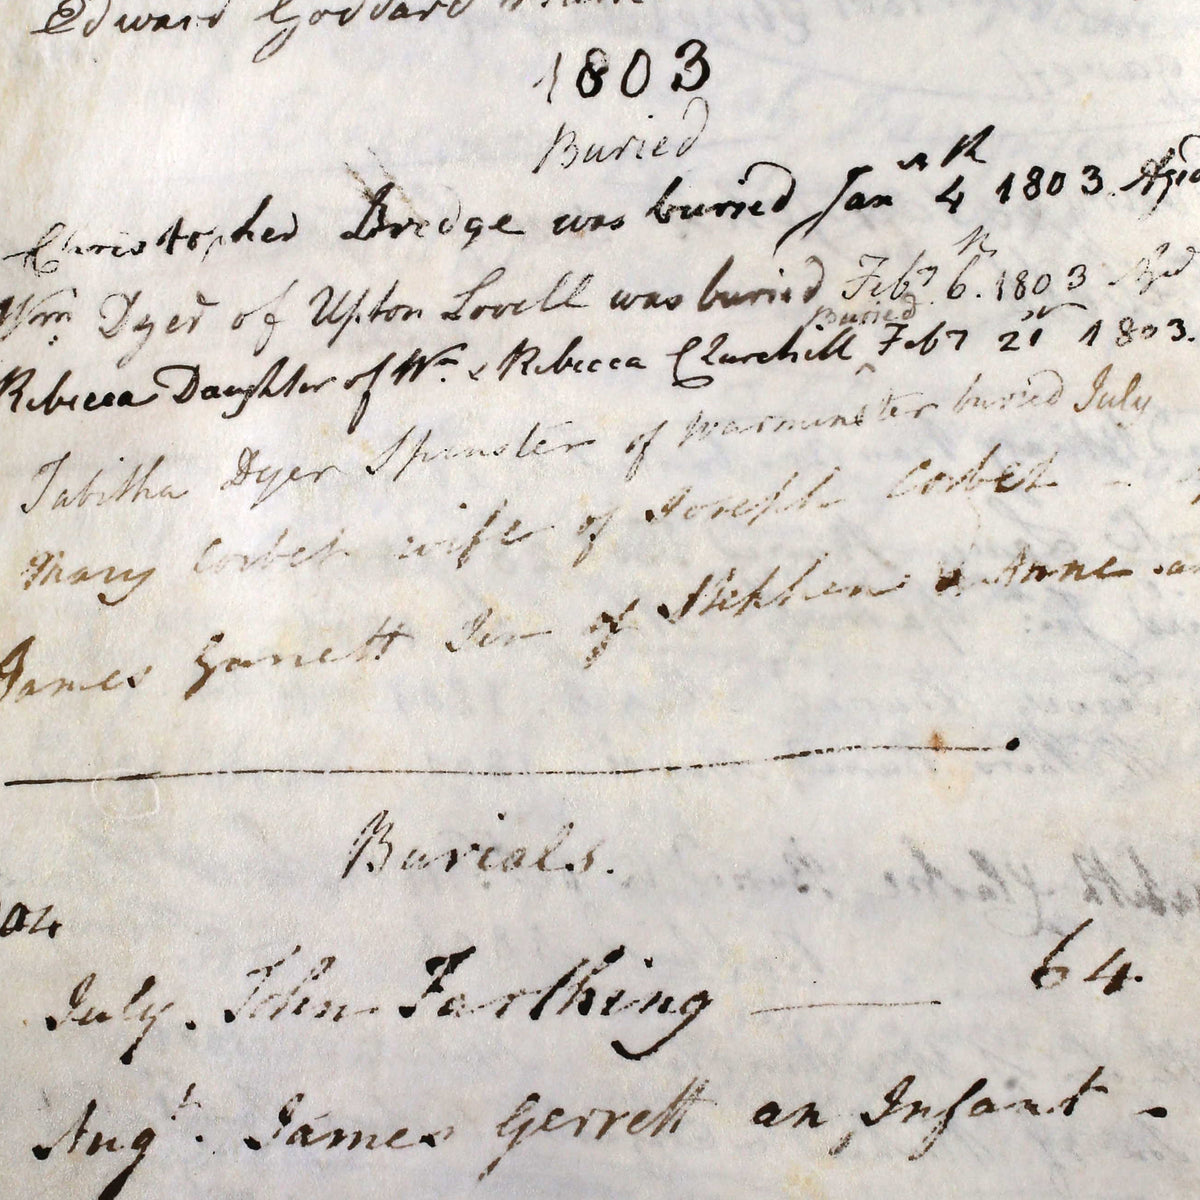 Edward Goddard
1803
Buried
Christopher Bredge was buried Janry 4th 1803. Aged
Wm Dyer of Upton Lovell was buried Feby 6th. 1803 Aged
Rebecca Daughter of Wm & Rebecca Churchill ^Buried Feby 21st 1803.
Tabitha Dyer Spinster of Warminster buried July
Mary Corbet wife of Joseph Corbet -
James Garrett of Stephen & Anne
Burials.
04
July. John Farthing — 64.
Augt. James Gerrett an Infant -